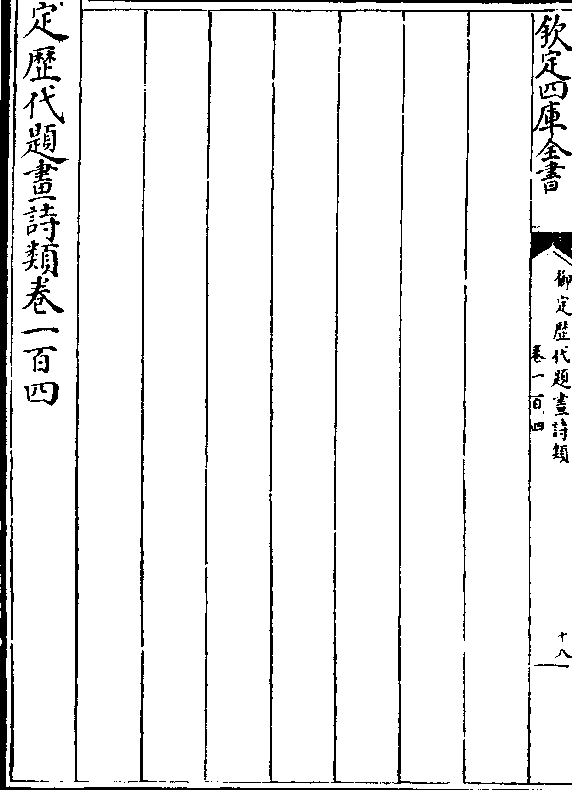 欽定四庫全書
御定歷代題畫詩類
卷一百四
十八
定歷代題畫詩類卷一百四